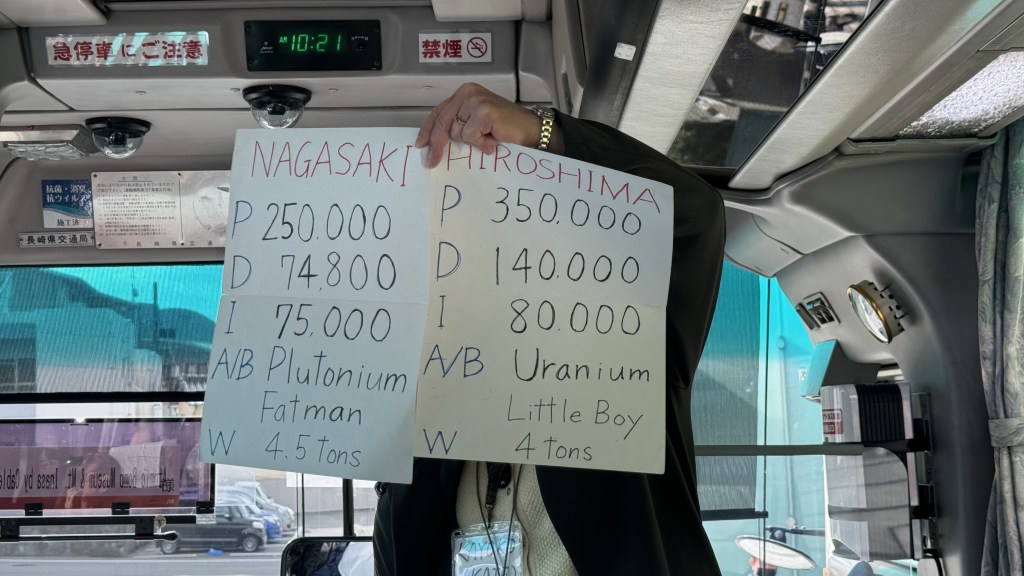 急停車にご注意
AM 10:21
禁煙
抗菌・消臭
抗ウイル
施工済
長崎県交通局
NAGASAKI
P 250.000
D 74.800
I 75.000
A/B Plutonium
Fatman
W 4.5 tons
HIROSHIMA
P 350.000
D 140.000
I 80.000
A/B Uranium
Little Boy
W 4 tons
Bomb Museum & Mt. Inasa by Cable